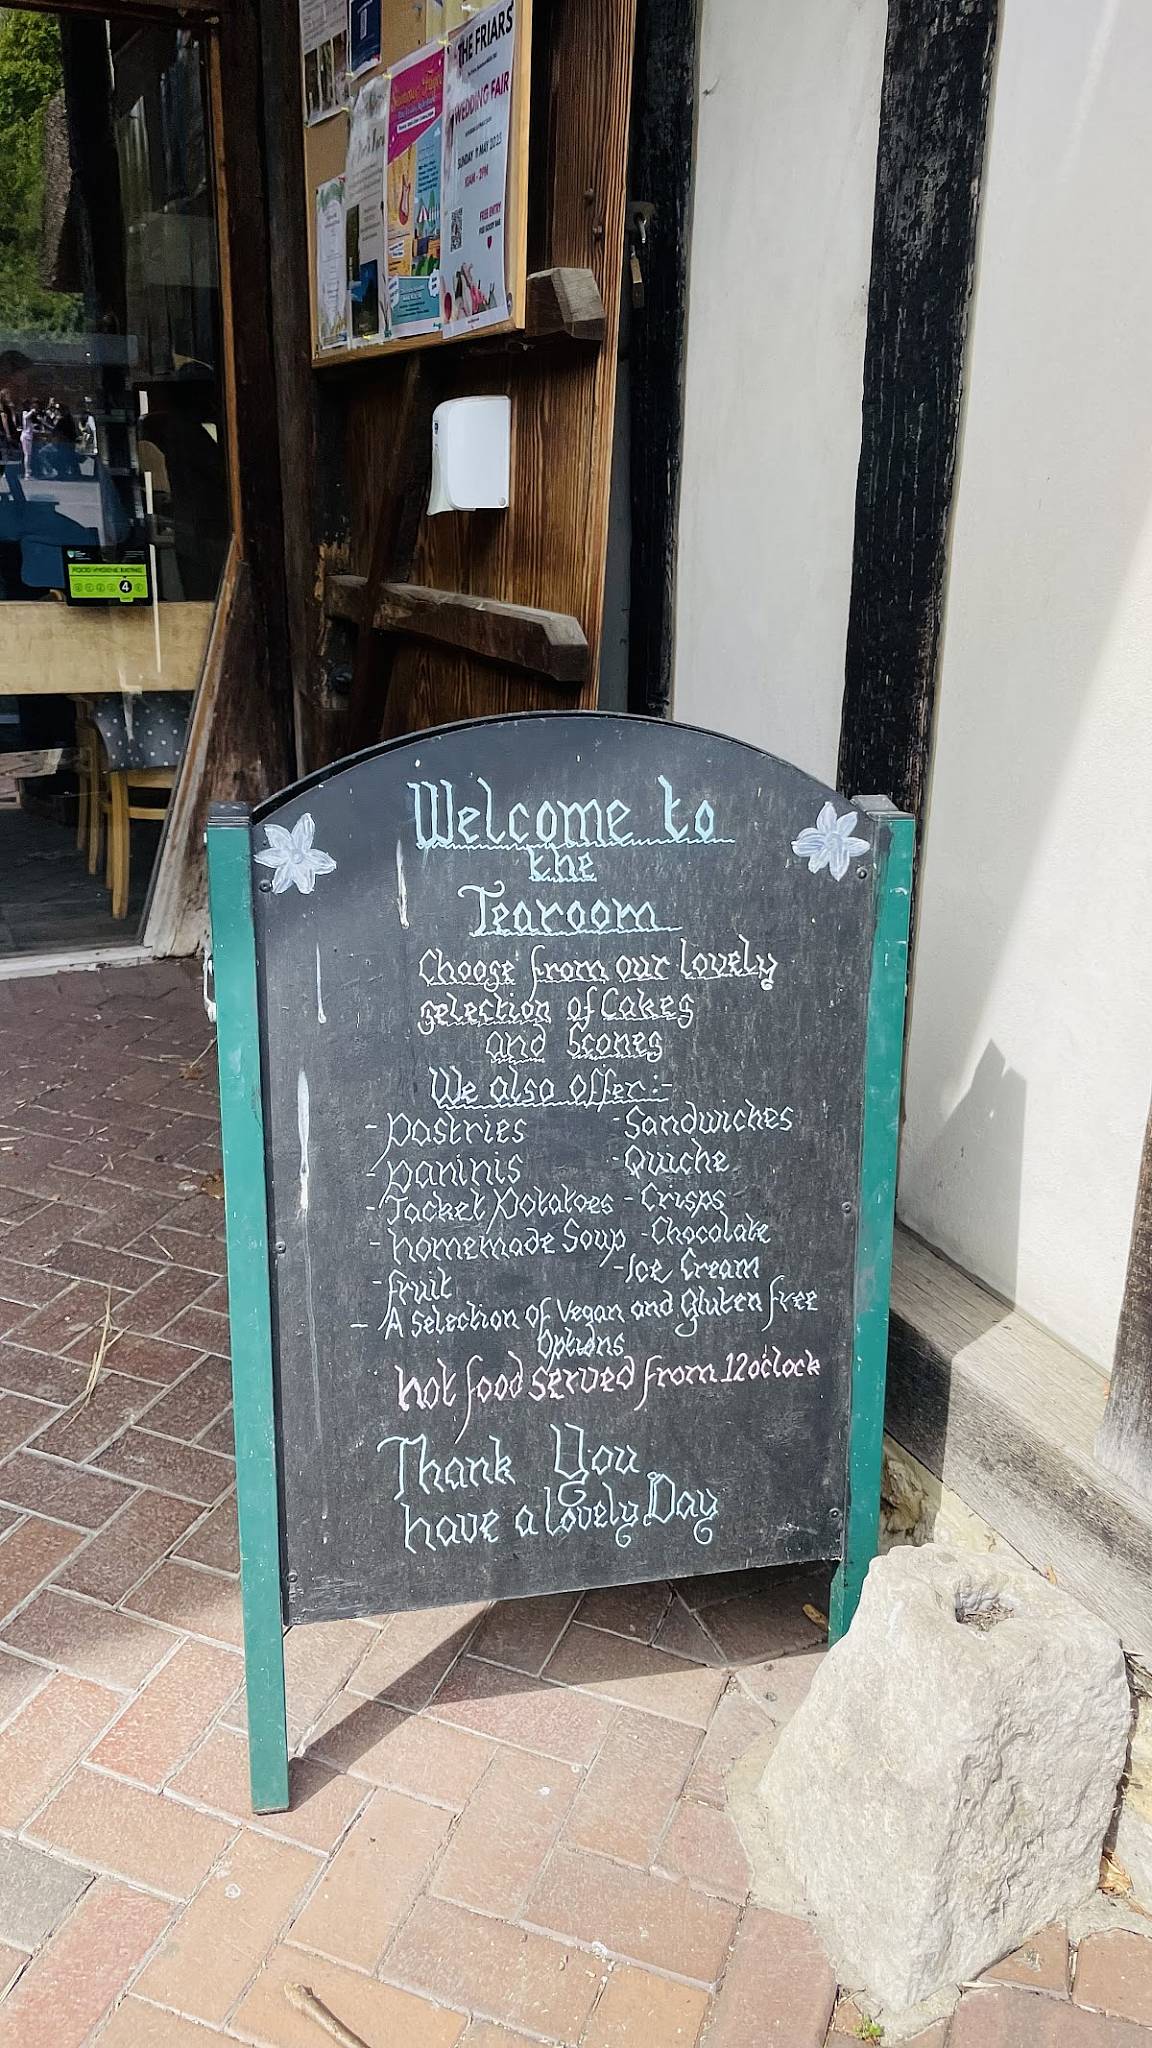 THE FRIARS
WEDDING FAIR
SUNDAY 11 MAY 2025
10AM - 2PM
FREE ENTRY
FOOD HYGIENE RATING
4
Welcome to
the
Tearoom
Choose from our lovely
selection of Cakes
and Scones
We also offer:-
- Pastries - Sandwiches
- paninis - Quiche
- Jacket Potatoes - Crisps
- homemade Soup - Chocolate
- Ice Cream
- fruit
- A Selection of Vegan and Gluten free
Options
hot food served from 12 o'clock
Thank You
have a lovely Day